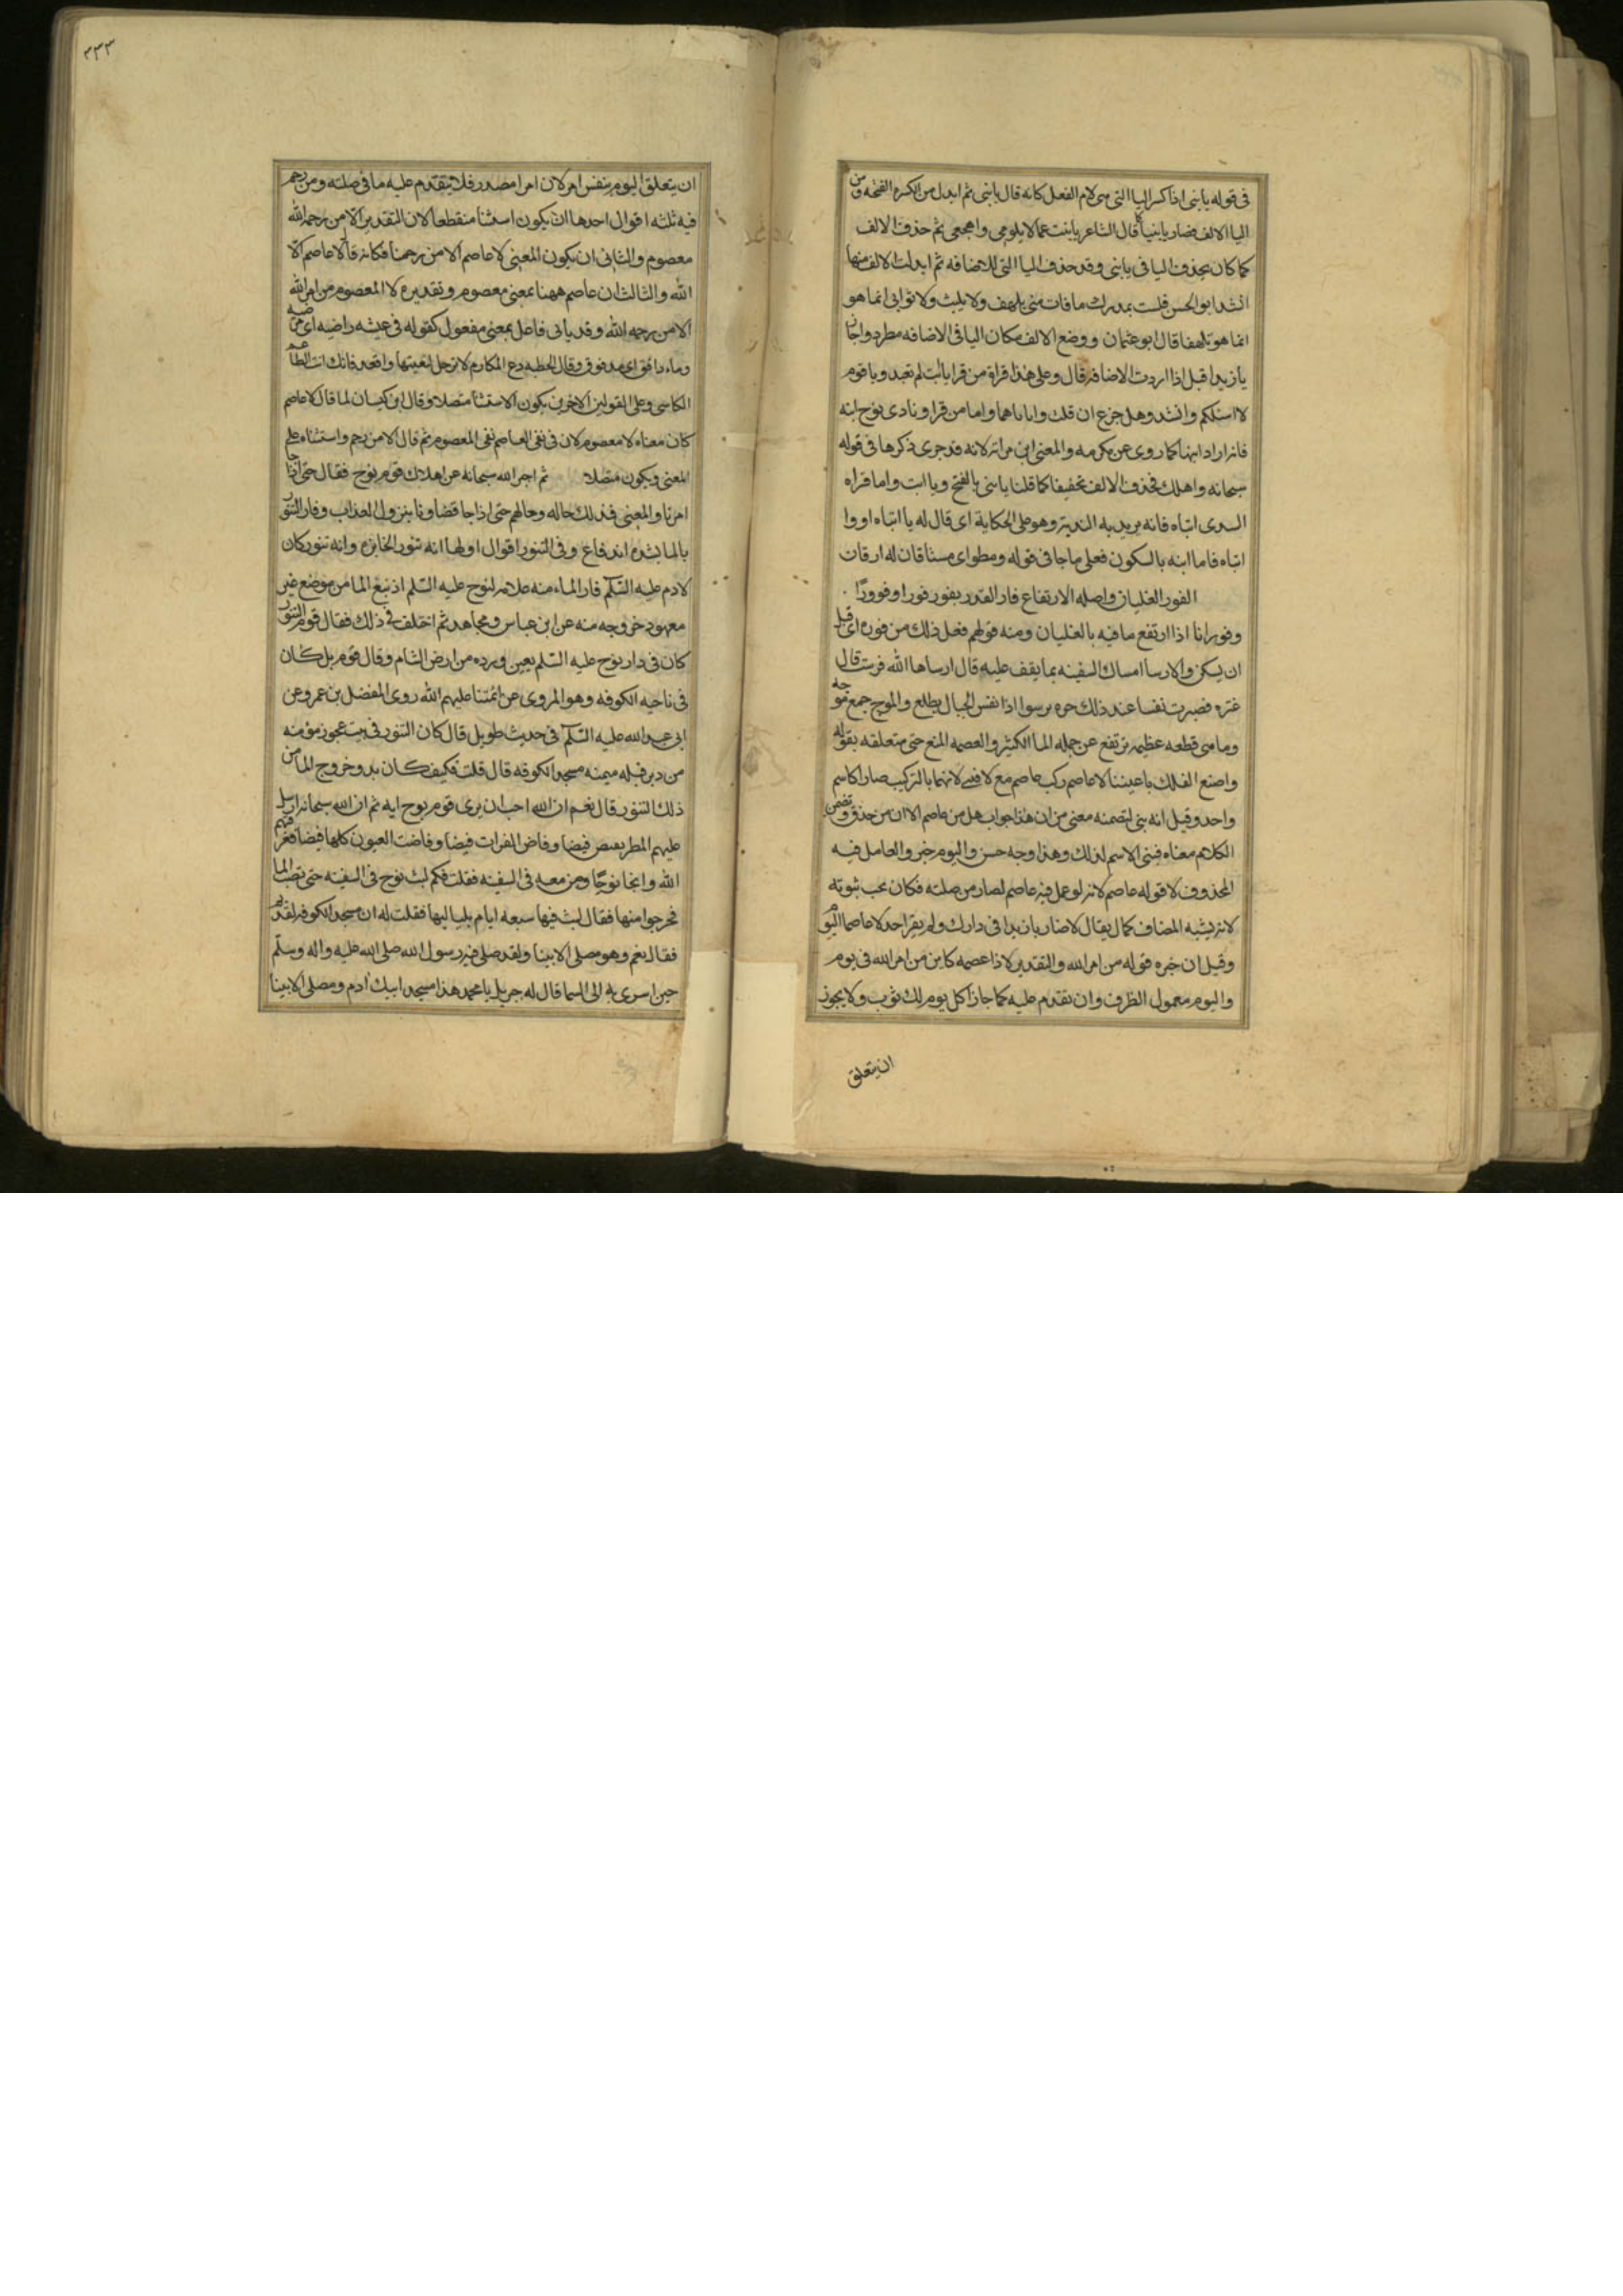 في قوله يا بنى اذا كسر اليا التي هي لام الفعل كانه قال يا بنى ثم ابدل من الكسره الفتحه ومن
اليا الالف فصار يا بنيا كما قال الشاعر يا بنت عما لا يلومى واهجعى ثم حذف الالف
كما كان يحذف اليا في يا بنى وقد حذف اليا التي للاضافه ثم ابدلت الالف منها
انشد ابو الحسن فلست بمدرك ما فات منى بلهف ولا بليت ولا لو انى انما هو
انما هو بلهفا قال ابو عثمان ووضع الالف مكان اليا في الاضافه مطرد واجاز
يا زيدا اقبل اذا اردت الاضافه قال وعلى هذا قراة من قرا يا ابت لم تعبد ويا قوم
لا اسئلكم وانشد وهل جزع ان قلت وا باباهما واما من قرا ونادى نوح ابنه
فانه اراد ابنها كما روى عن عكرمه والمعنى ابن مراته لانه قد جرى ذكرها في قوله
سبحانه واهلك فحذف الالف تخفيفا كما قلنا يا بنى بالفتح ويا ابت واما قراه
السدى ابناه فانه يريد به الندبة وهو على الحكاية اى قال له يا ابناه او وا
ابناه فاما ابنه بالسكون فعلى ما جا في قوله ومطواى مشتاقان له ارقان
الفور الغليان واصله الارتفاع فار القدر يفور فورا وفوورًا
وفورانا اذا ارتفع ما فيه بالغليان ومنه قولهم فعل ذلك من فوره اى قبل
ان يسكن والارسا امساك السفينه بما يقف عليه قال ارساها الله فرست قال
عنتره فصبرت نفسا عند ذلك حره ترسوا اذا نفس الجبان تطلع والموج جمع موجه
وما هى قطعه عظيمه ترتفع عن جمله الما الكثير والعصمه المنع حتى متعلقه بقوله
واصنع الفلك باعيننا لا عاصم ركب عاصم مع لا فبنى لانهما بالتركيب صارا كاسم
واحد وقيل انه بنى لتضمنه معنى من لان هذا جواب هل من عاصم الا ان من حذف وتضمن
الكلام معناه فبنى الاسم لذلك وهذا وجه حسن واليوم خبر والعامل فيه
المحذوف لا قوله عاصم لانه لو عمل فيه عاصم لصار من صلته فكان يجب ثبوته
لانه يشبه المضاف كما لا يقال لا ضاربا زيدا في دارك ولم يقرا احد لا عاصما اليوم
وقيل ان خبره قوله من امر الله والتقدير لا ذا عصمه كاين من امر الله في يوم
واليوم معمول الظرف وان تقدم عليه كما جاز اكل يوم لك ثوب ولا يجوز
ان يتعلق
٣٣٣
ان يتعلق اليوم بنفس امر لان امرا مصدر فلا يتقدم عليه ما في صلته ومن رحم
فيه ثلثه اقوال احدها ان يكون استثنا منقطعا لان التقدير الا من رحمه الله
معصوم والثانى ان يكون المعنى لا عاصم الا من رحمنا فكانه قال لا عاصم الا
الله والثالث ان عاصم ههنا بمعنى معصوم وتقديره لا المعصوم من امر الله
الا من رحمه الله وقد ياتى فاعل بمعنى مفعول كقوله في عيشه راضيه اى مرضيه
وماء دافق اى مدفوق وقال الحطيه دع المكارم لا ترحل لبغيتها واقعد فانك انت الطاعم
الكاسى وعلى القولين الاخرين يكون الاستثنا متصلا وقال ابن كيسان لما قال لا عاصم
كان معناه لا معصوم لان في نفى العاصم نفى المعصوم ثم قال الا من رحم واستثناه على
المعنى ويكون متصلا ثم اخبر الله سبحانه عن اهلاك قوم نوح فقال حتى اذا جا
امرنا والمعنى فذلك حاله وحالهم حتى اذا جا قضاونا بنزول العذاب وفار التنور
بالما بشده اندفاع وفى التنور اقوال اولها انه تنور الخابزه وانه تنور كان
لادم عليه السّلم فار الماء منه علامه لنوح عليه السّلم اذ نبع الما من موضع غير
معهود خروجه منه عن ابن عباس ومجاهد ثم اختلف في ذلك فقال قوم التنور
كان في دار نوح عليه السّلم بعين ورده من ارض الشام وقال قوم بل كان
في ناحيه الكوفه وهو المروى عن ائمتنا عليهم الله روى المفضل بن عمر وعن
ابى عبد الله عليه السّلم في حديث طويل قال كان التنور في بيت عجوز مؤمنه
من دبر قبله ميمنه مسجد الكوفه قال قلت فكيف كان بدو خروج الما من
ذلك التنور قال نعم ان الله احب ان يرى قوم نوح ايه ثم ان الله سبحانه ارسل
عليهم المطر يفيض فيضا وفاض الفرات فيضا وفاضت العيون كلها فيضا فغرقهم
الله وانجا نوحًا ومن معه في السفينه فقلت فكم لبث نوح في السفينه حتى نضب الما
فخرجوا منها فقال لبث فيها سبعه ايام بلياليها فقلت له ان مسجد الكوفه لقديم
فقال نعم وهو مصلى الانبيا ولقد صلى فيه رسول الله صلى الله عليه واله وسلّم
حين اسرى به الى السما قال له جبريل يا محمد هذا مسجد ابيك ادم ومصلى الانبيا